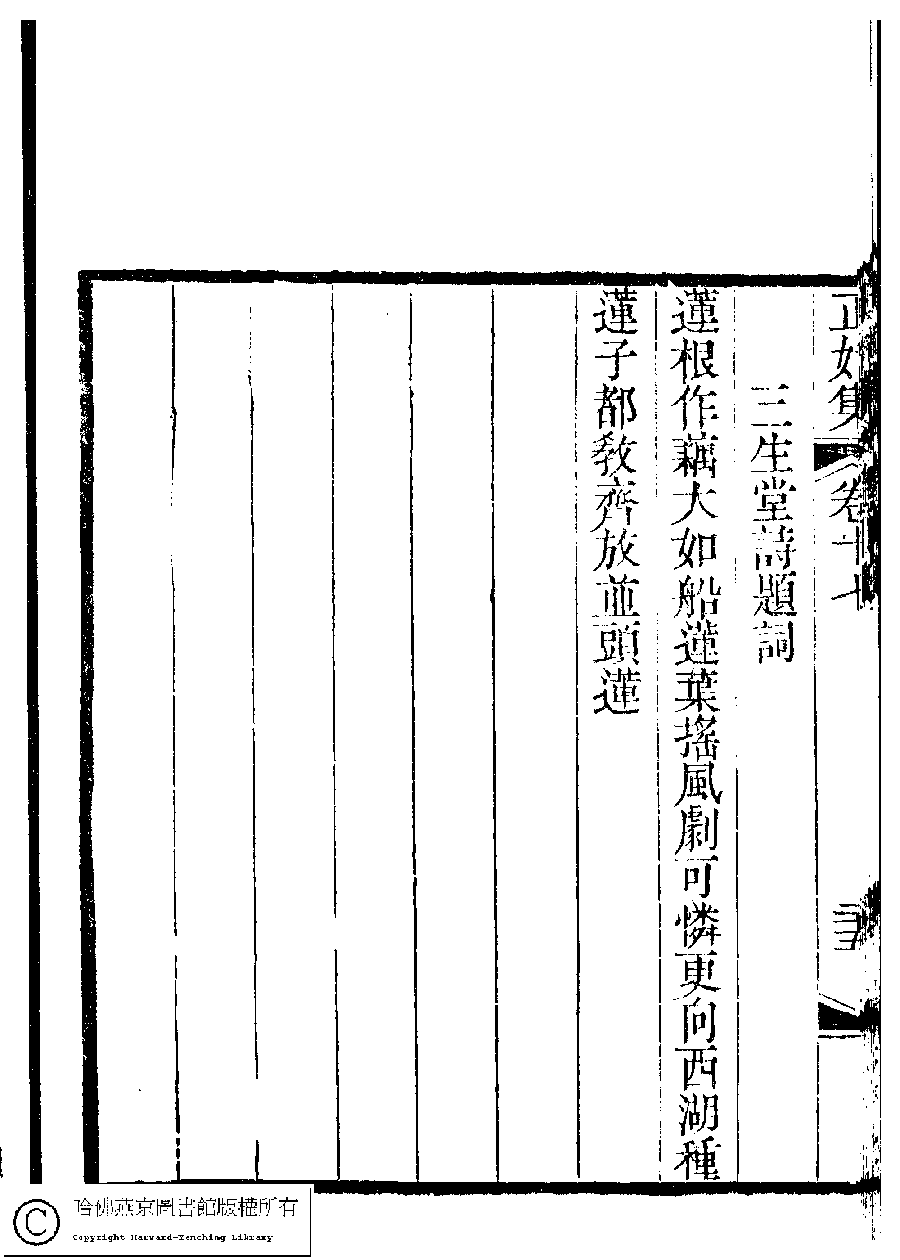 正始集 卷十七
三生堂詩題詞
蓮根作藕大如船蓮葉搖風劇可憐更向西湖種
蓮子都敎齊放並頭蓮
哈佛燕京圖書館版權所有
Copyright Harvard-Yenching Library